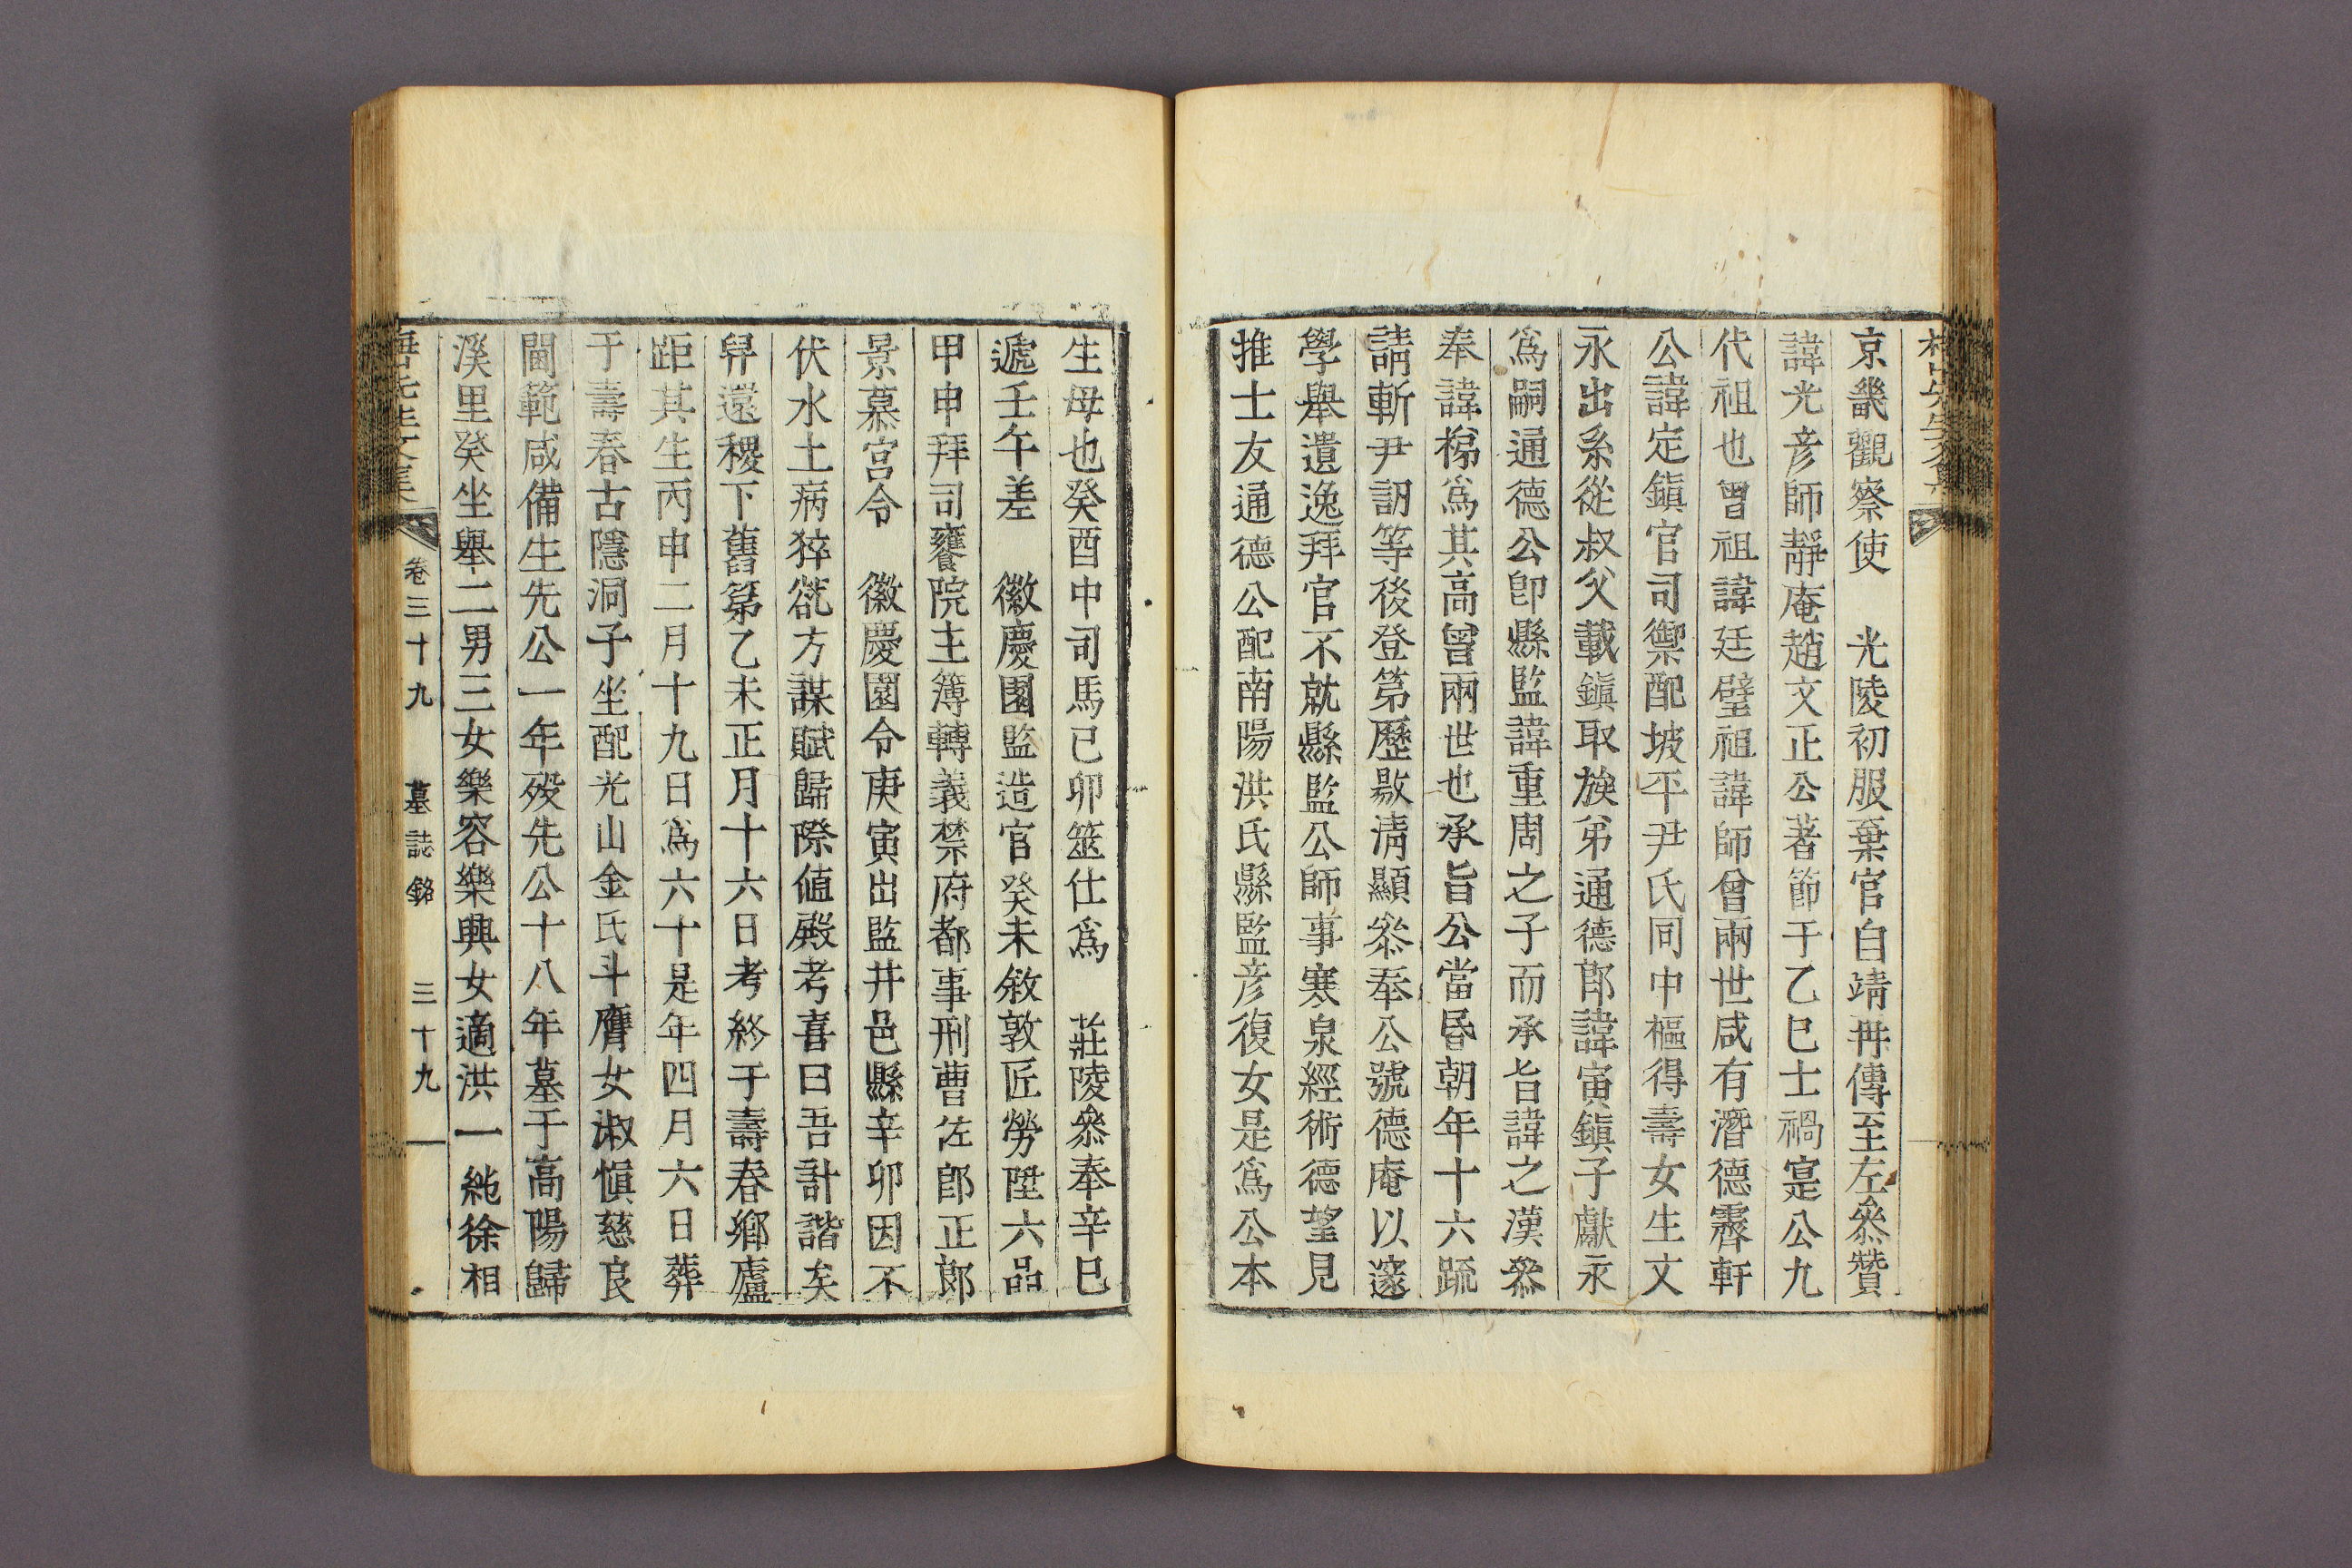 京畿觀察使　光陵初服棄官自靖再傳至左叅贊
諱光彦師靜庵趙文正公著節于乙巳士禍寔公九
代祖也曾祖諱廷璧祖諱師曾兩世咸有潛德霽軒
公諱定鎭官司禦配坡平尹氏同中樞得壽女生文
永出系從叔父載鎭取族弟通德郎諱寅鎭子獻永
爲嗣通德公卽縣監諱重周之子而承旨諱之漢叅
奉諱梯爲其高曾兩世也承旨公當昏朝年十六疏
請斬尹訒等後登第歷敭淸顯叅奉公號德庵以邃
學舉遺逸拜官不就縣監公師事寒泉經術德望見
推士友通德公配南陽洪氏縣監彦復女是爲公本
生母也癸酉中司馬己卯筮仕爲　莊陵叅奉辛巳
遞壬午差　徽慶園監造官癸未敘敦匠勞陞六品
甲申拜司饔院主簿轉義禁府都事刑曹佐郎正郎
景慕宮令　徽慶園令庚寅出監井邑縣辛卯因不
伏水土病猝㞃方謀賦歸際値殿考喜曰吾計諧矣
舁還稷下舊第乙未正月十六日考終于壽春鄉廬
距其生丙申二月十九日爲六十是年四月六日葬
于壽春古隱洞子坐配光山金氏斗膺女淑愼慈良
閫範咸備生先公一年歿先公十八年墓于高陽歸
溪里癸坐舉二男三女樂容樂興女適洪一純徐相
先生文集
卷三十九　墓誌銘　三十九